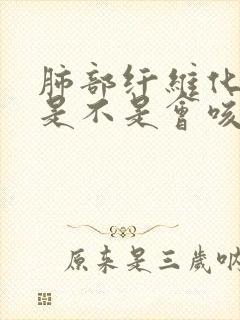 肺部纤維化
是不是會咳
原来是三歲吶